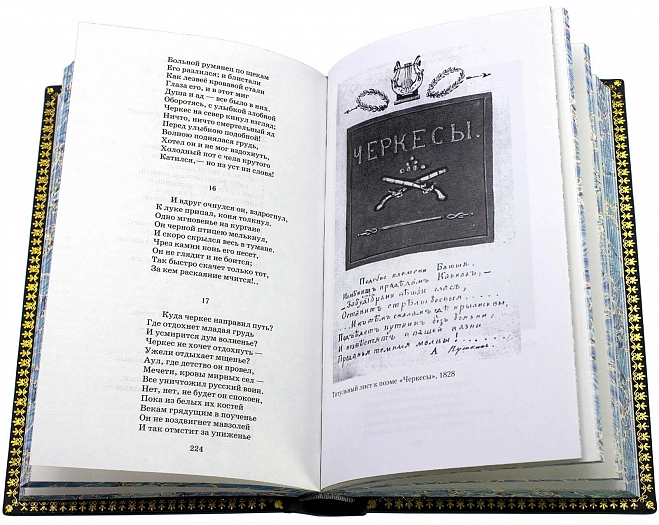 Больной румянец по щекам
Его разлился; и блистали
Как лезвеё кровавой стали
Глаза его, и в этот миг
Душа и ад — все было в них.
Оборотясь, с улыбкой злобной
Черкес на север кинул взгляд;
Ничто, ничто смертельный яд
Перед улыбкою подобной!
Волною поднялася грудь,
Хотел он и не мог вздохнуть,
Холодный пот с чела крутого
Катился, — но из уст ни слова!
16
И вдруг очнулся он, вздрогнул,
К луке припал, коня толкнул.
Одно мгновенье на кургане
Он черной птицею мелькнул,
И скоро скрылся весь в тумане.
Чрез камни конь его несет,
Он не глядит и не боится;
Так быстро скачет только тот,
За кем раскаяние мчится!..
17
Куда черкес направил путь?
Где отдохнет младая грудь
И усмирится дум волненье?
Черкес не хочет отдохнуть —
Ужели отдыхает мщенье?
Аул, где детство он провел,
Мечети, кровы мирных сел —
Все уничтожил русский воин.
Нет, нет, не будет он спокоен,
Пока из белых их костей
Векам грядущим в поученье
Он не воздвигнет мавзолей
И так отмстит за униженье
224
ЧЕРКЕСЫ.
Подобно племени Батыя,
Измѣнитъ прадѣдамъ Кавказъ,—
Забудетъ брани вѣщій гласъ,
Оставитъ стрѣлы боевыя......
....И къ тѣмъ скаламъ гдѣ крылись вы,
Подъѣдетъ путникъ безъ боязни,
И возвѣстятъ о вашей казни
Преданья темныя молвы!....
А. Пушкинъ.
Титульный лист к поэме «Черкесы», 1828